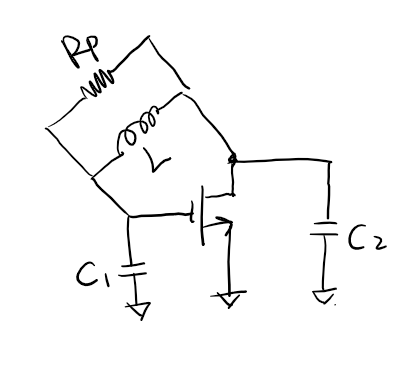 Rp
L
C1
C2